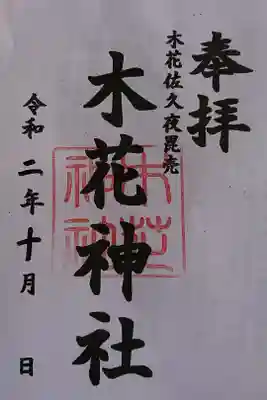 奉拝
木花佐久夜毘売
木花神社
令和二年十月　日